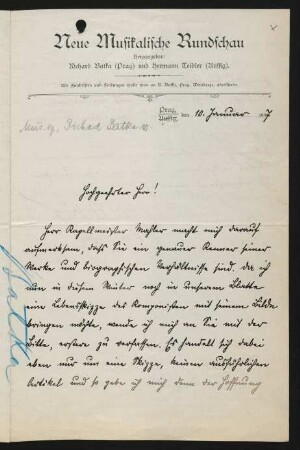 Neue Musikalische Rundschau
Herausgeber:
Richard Batka (Prag) und Hermann Teibler (Aussig).
Alle Zuschriften und Sendungen wolle man an R. Batka, Prag, Weinberge, adressieren.
Prag,
Aussig, den 10. Januar 97
Richard Batka
Hochgeehrter Herr!
Herr Kapellmeister Mahler macht mich darauf
aufmerksam, dass Sie ein genauer Kenner seiner
Werke und biographischen Verhältnisse sind. Da ich
nun in diesem Winter noch in unserem Blatte
eine Lebensskizze des Komponisten mit seinem Bilde
bringen möchte, wende ich mich an Sie mit der
Bitte, erstere zu verfassen. Es handelt sich dabei
eben nur um eine Skizze, keinen ausführlichen
Artikel und so gebe ich mich denn der Hoffnung
Batka